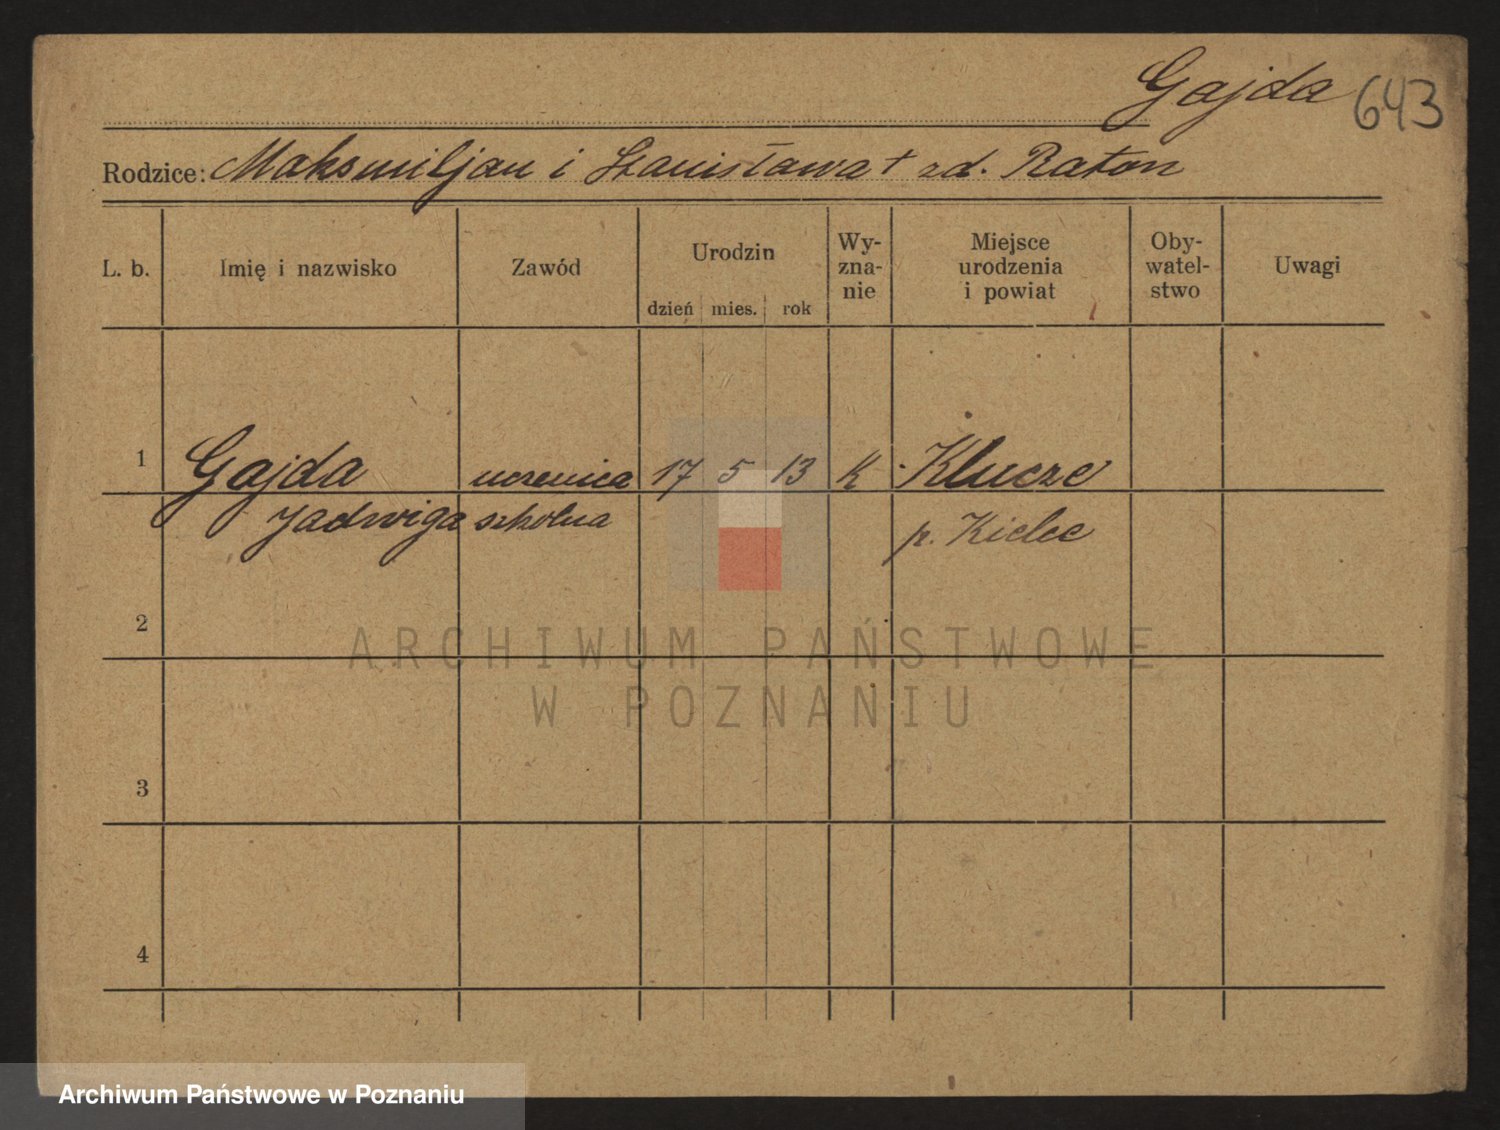 Gajda 643
Rodzice: Maksmiljan i Stanisława † zd. Raton
L. b. Imię i nazwisko Zawód Urodzin dzień mies. rok Wy-zna-nie Miejsce urodzenia i powiat Oby-watel-stwo Uwagi
1 Gajda uczenica 17 5 13 k Klucze
Jadwiga szkolna p. Kielce
2
ARCHIWUM PAŃSTWOWE
W POZNANIU
3
4
Archiwum Państwowe w Poznaniu